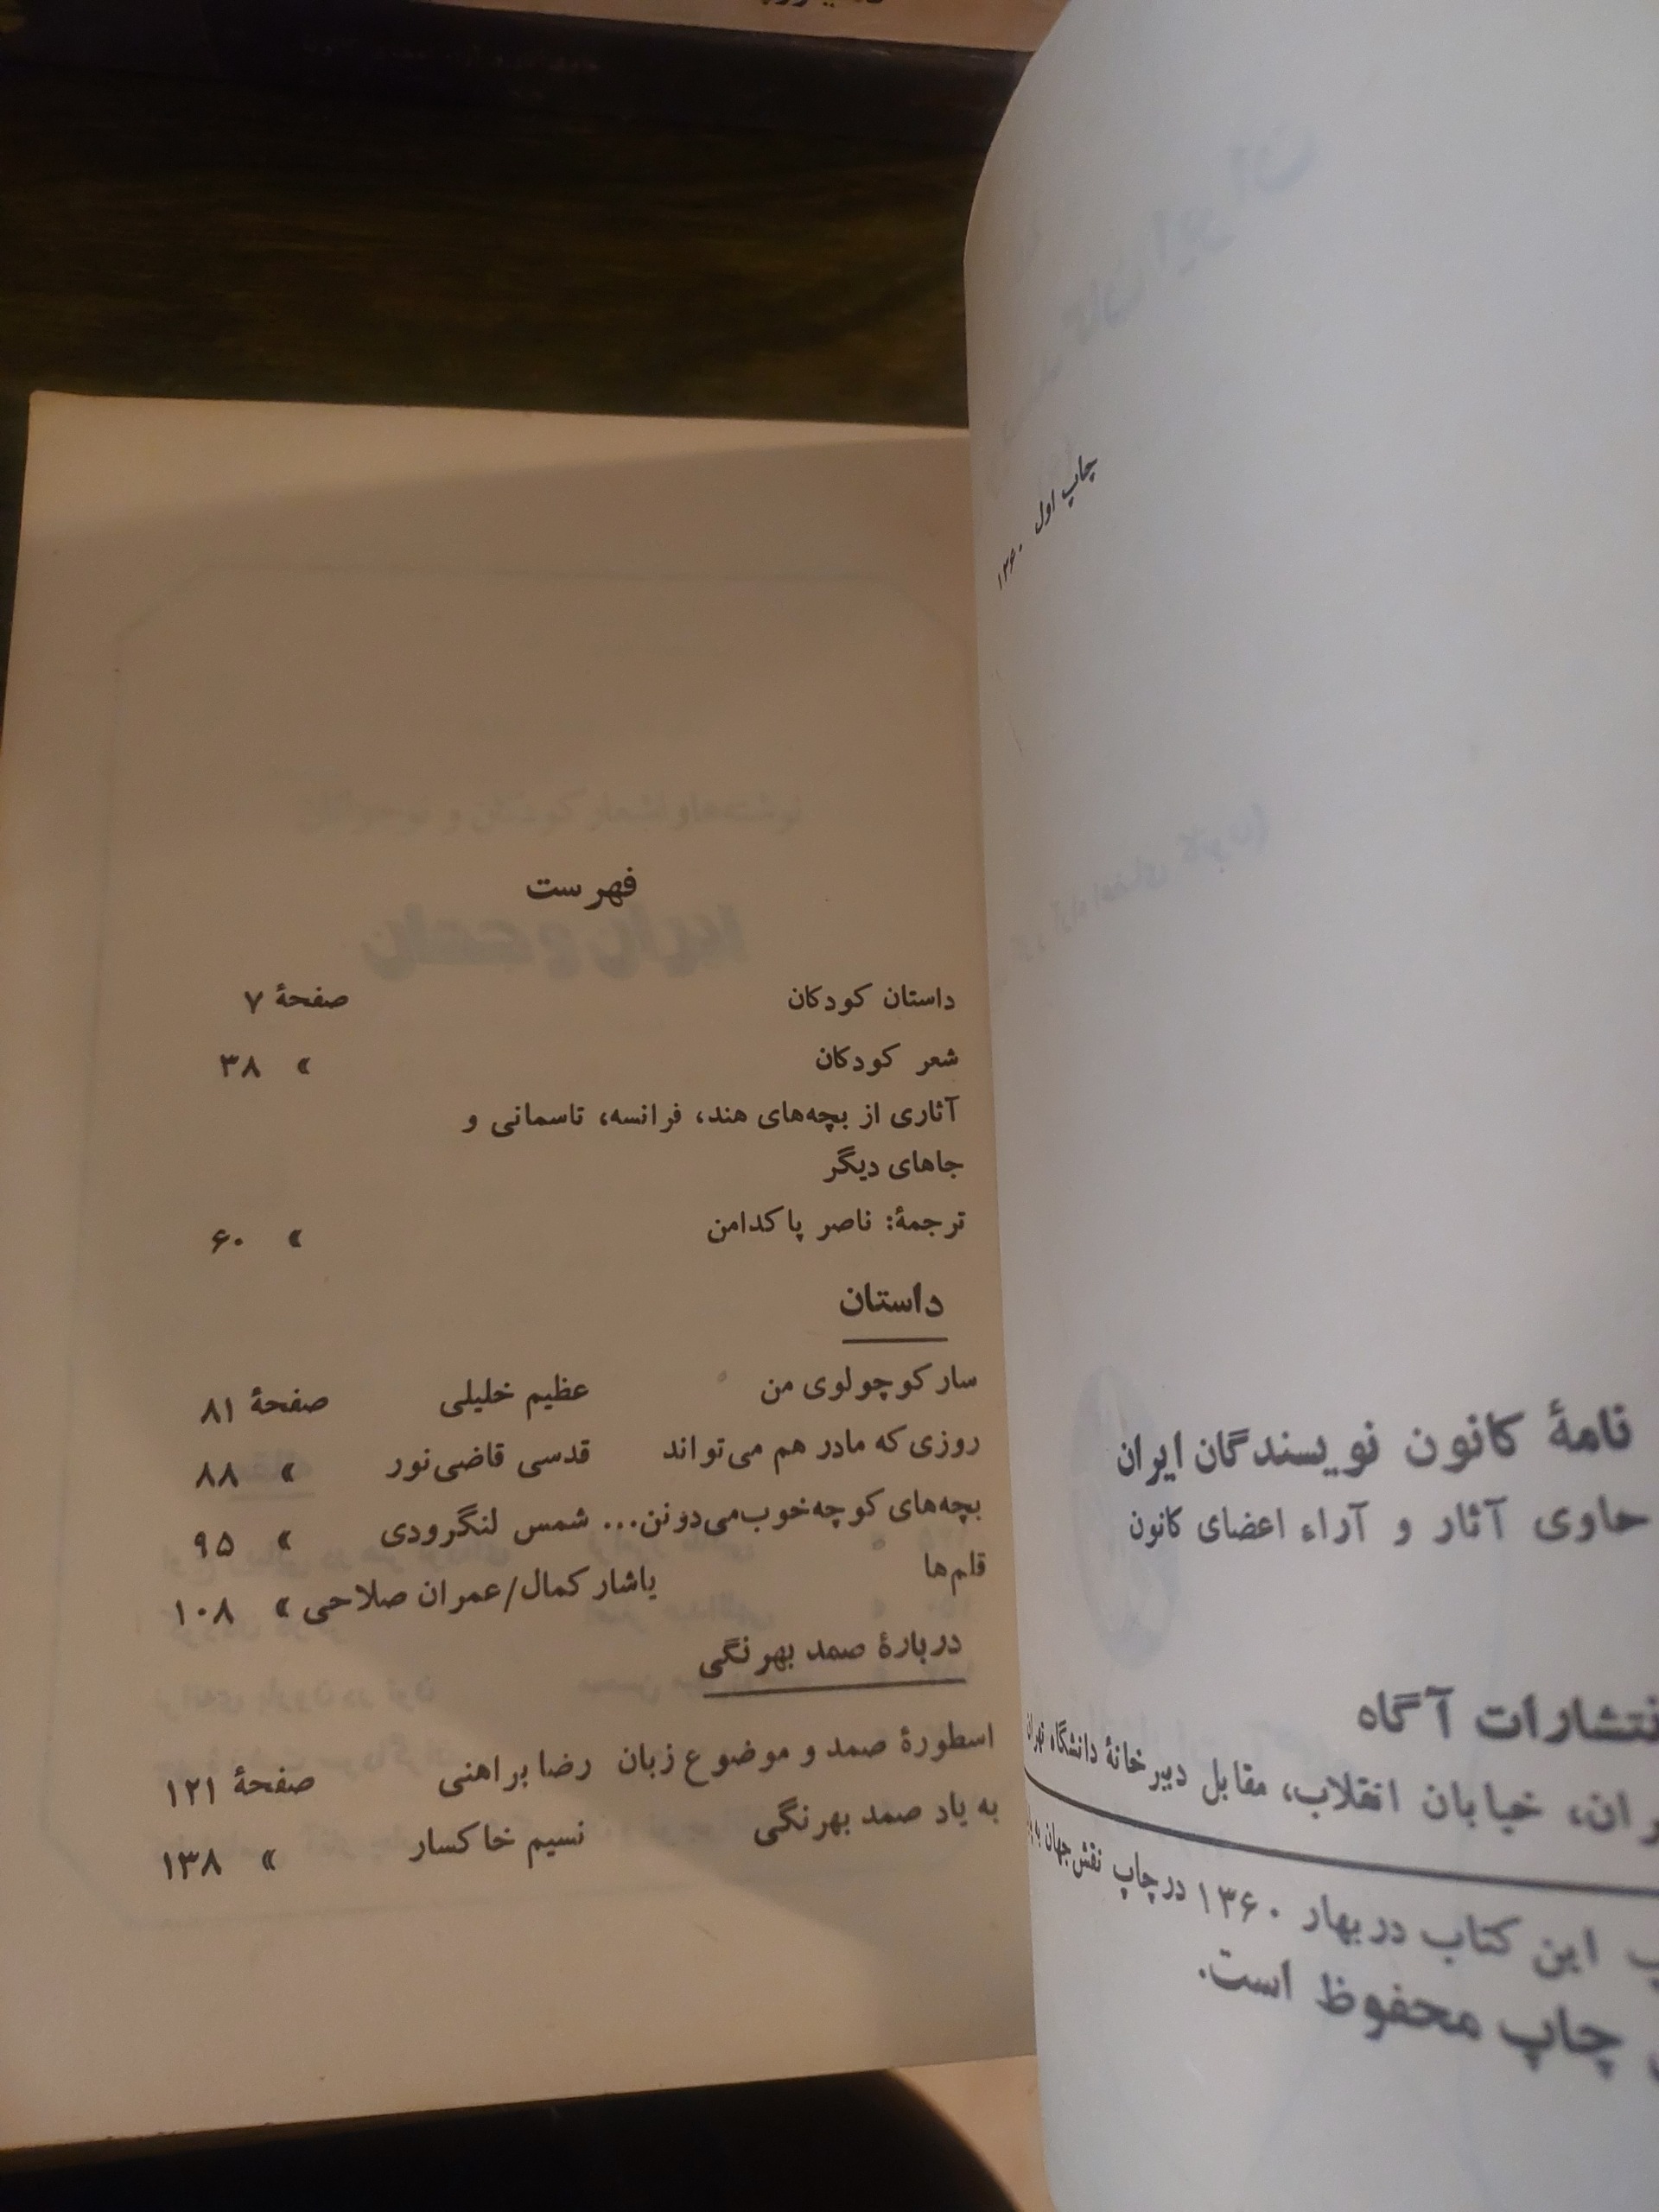 چاپ اول ۱۳۶۰
نامهٔ کانون نویسندگان ایران
حاوی آثار و آراء اعضای کانون
نتشارات آگاه
ران، خیابان انقلاب، مقابل دبیرخانهٔ دانشگاه تهران
پ این کتاب در بهار ۱۳۶۰ در چاپ نقش‌جهان به
چاپ محفوظ است.
فهرست
داستان کودکان صفحهٔ ۷
شعر کودکان » ۳۸
آثاری از بچه‌های هند، فرانسه، تاسمانی و
جاهای دیگر
ترجمهٔ: ناصر پاکدامن » ۶۰
داستان
سار کوچولوی من عظیم خلیلی صفحهٔ ۸۱
روزی که مادر هم می‌تواند قدسی قاضی‌نور » ۸۸
بچه‌های کوچه خوب می‌دونن... شمس لنگرودی » ۹۵
قلم‌ها یاشار کمال/عمران صلاحی » ۱۰۸
دربارهٔ صمد بهرنگی
اسطورهٔ صمد و موضوع زبان رضا براهنی صفحهٔ ۱۲۱
به یاد صمد بهرنگی نسیم خاکسار » ۱۳۸